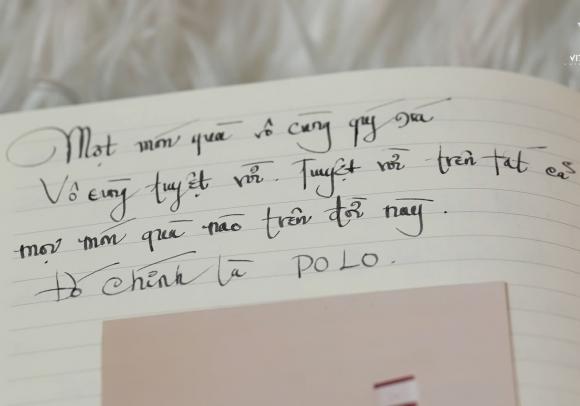 Một món quà vô cùng quý giá
Vô cùng tuyệt vời. Tuyệt vời trên tất cả
mọi món quà nào trên đời này.
Đó chính là POLO.